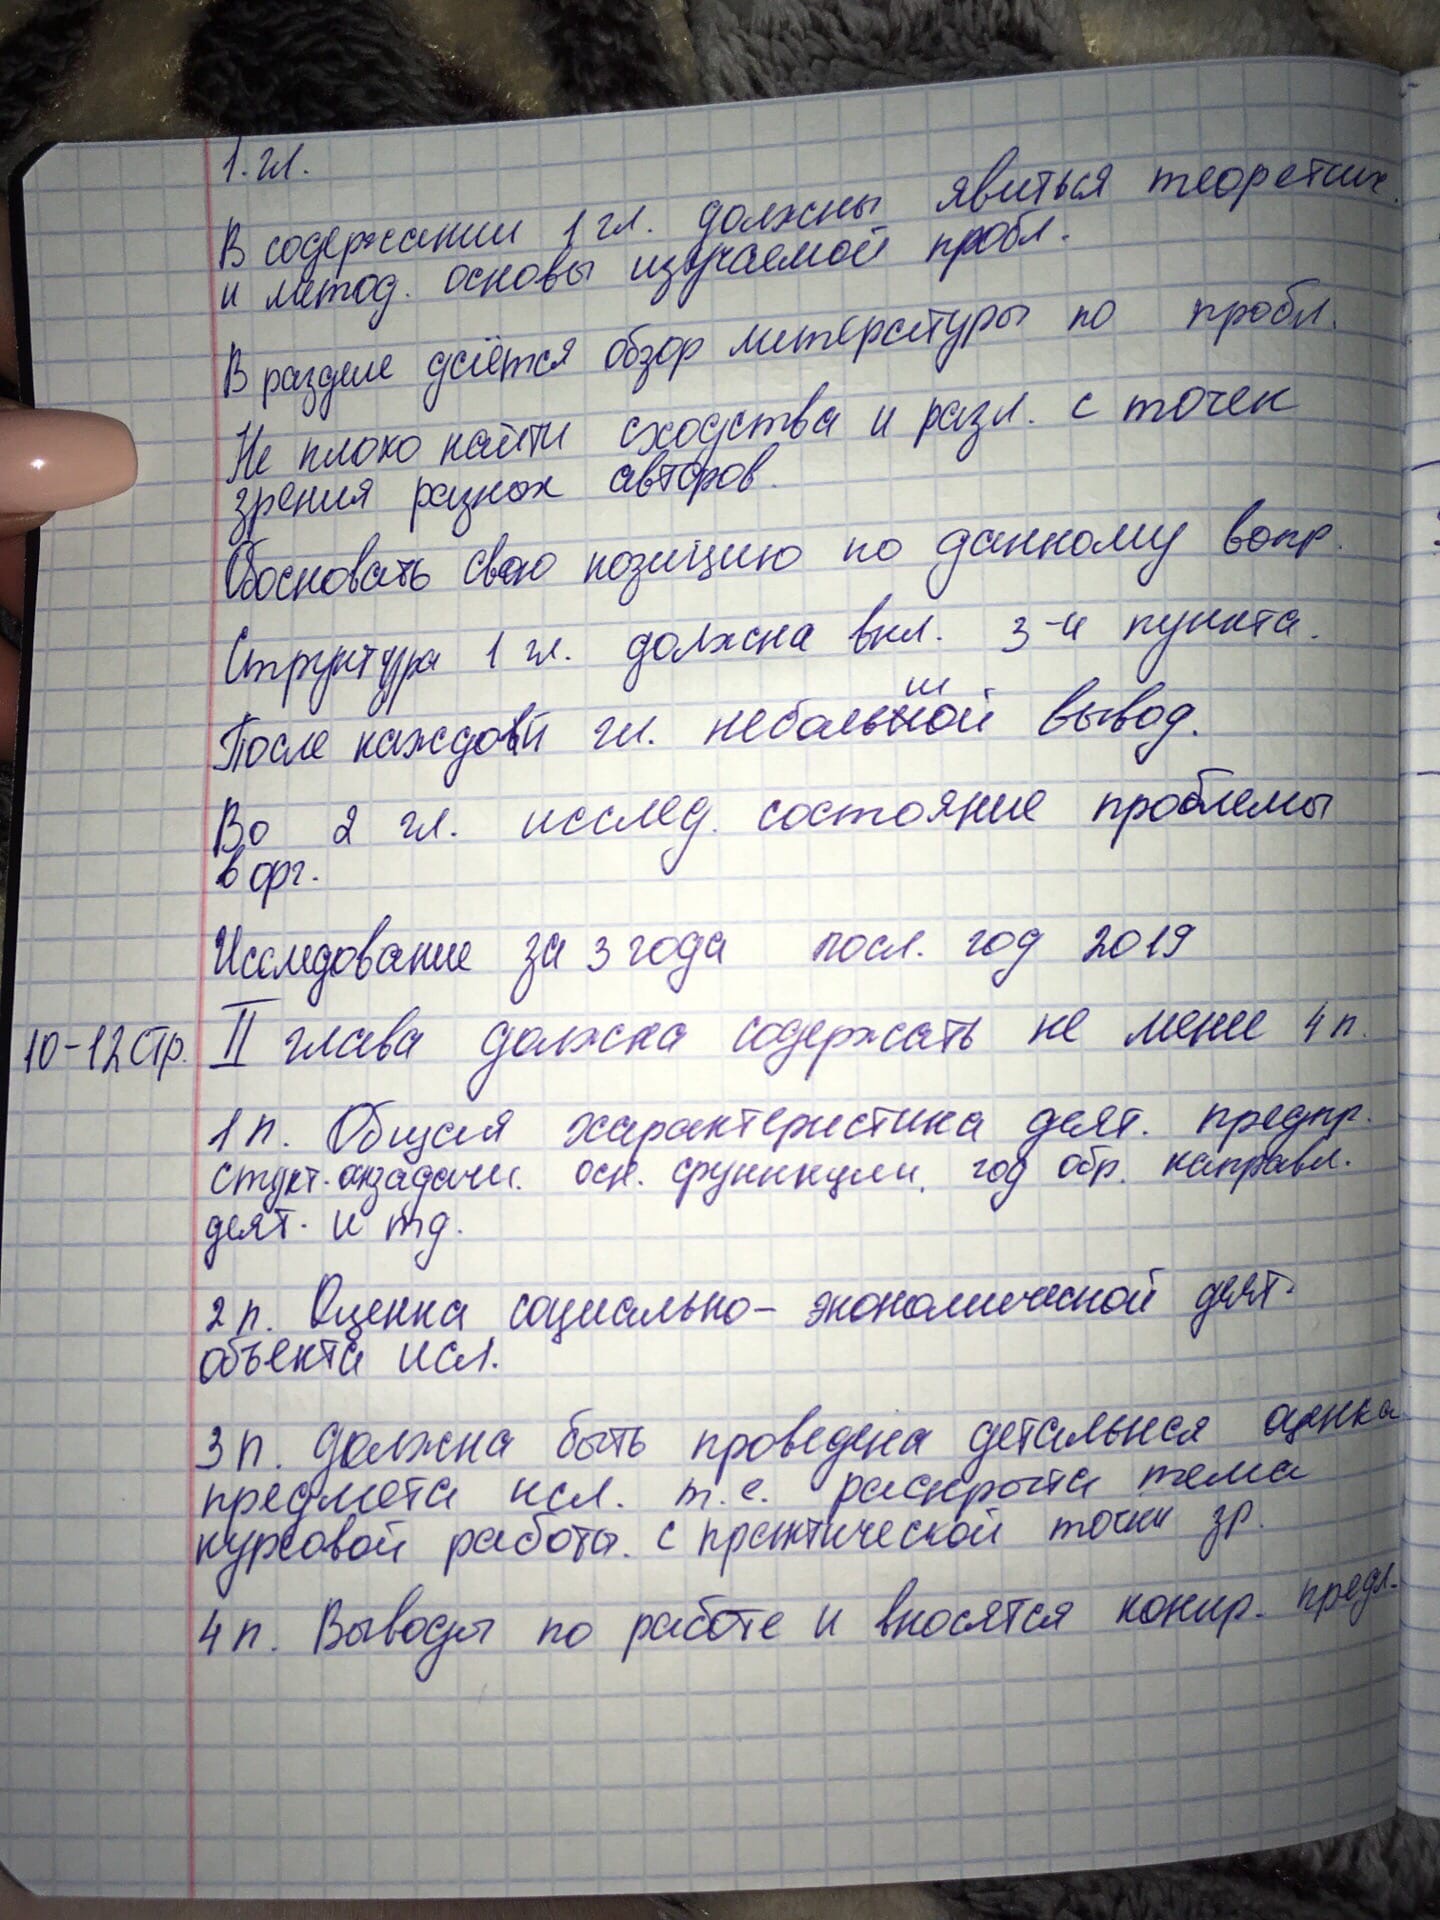 1. гл.
В содержании 1 гл. должны явиться теоретич.
и метод. основы изучаемой пробл.
В разделе даётся обзор литературы по пробл.
Не плохо найти сходства и разл. с точек
зрения разных авторов.
Обосновать свою позицию по данному вопр.
Структура 1 гл. должна вкл. 3-и пункта.
После каждой гл. небольшой вывод.
Во 2 гл. исслед. состояние проблемы
в орг.
Исследование за 3 года посл. год 2019
10-12 стр. II глава должна содержать не мене 4 п.
1 п. Общая характеристика деят. предпр.
осн. функции, год обр. направл.
деят. и тд.
2 п. Оценка социально - экономической деят.
объекта исл.
3 п. Должна быть проведена детальная оценка
предмета исл. т.е. раскрыта тема
курсовой работы. с практической точки зр.
4 п. Выводы по работе и вносятся конкр. предл.